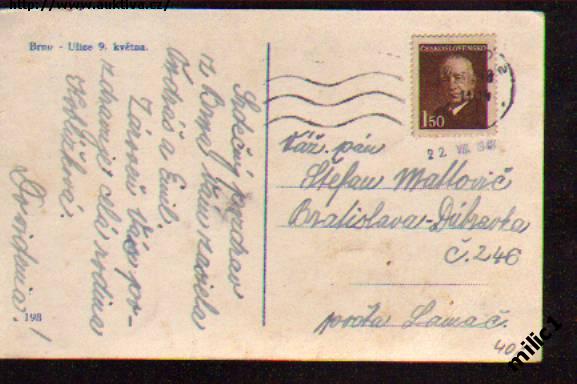 http://www.auktiva.cz/
Brno - Ulice 9. května.
Srdečný pozdrav
z Brna Vám zasiela
Ondráš a Emil.
Zároveň Vás po-
zdravuje celá rodina
Dovidenia!
198
ČESKOSLOVENSKO
1.50
22. VII. 948
Váž. pán
Štefan Mallovič
Bratislava-Dúbravka
č. 246
pošta Lamač.
40
milic1